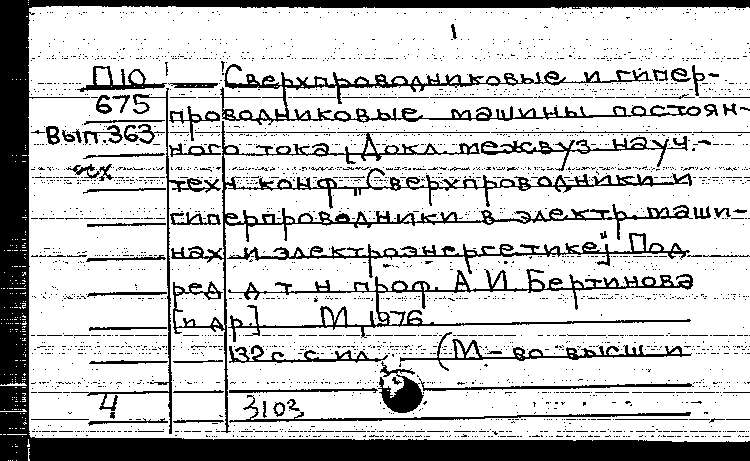 1
П10 Сверхпроводниковые и гипер-
675 проводниковые машины постоян-
Вып.363 ного тока [Докл межвуз науч.-
техн конф „Сверхпроводники и
гиперпроводники в электр. маши-
нах и электроэнергетике"] Под
ред д т н проф. А И Бертинова
[и др.] М, 1976.
132 с с ил (М-во высш и
4 3103